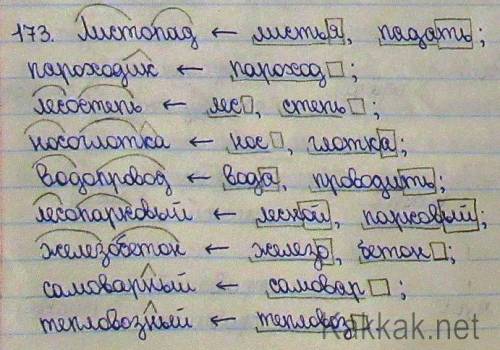 173. Листопад ← листья, падать;
пароходик ← пароход;
лесостепь ← лес, степь;
носоглотка ← нос, глотка;
водопровод ← вода, проводить;
лесопарковый ← лесной, парковый;
железобетон ← железо, бетон;
самоварный ← самовар;
тепловозный ← тепловоз
kakkak.net